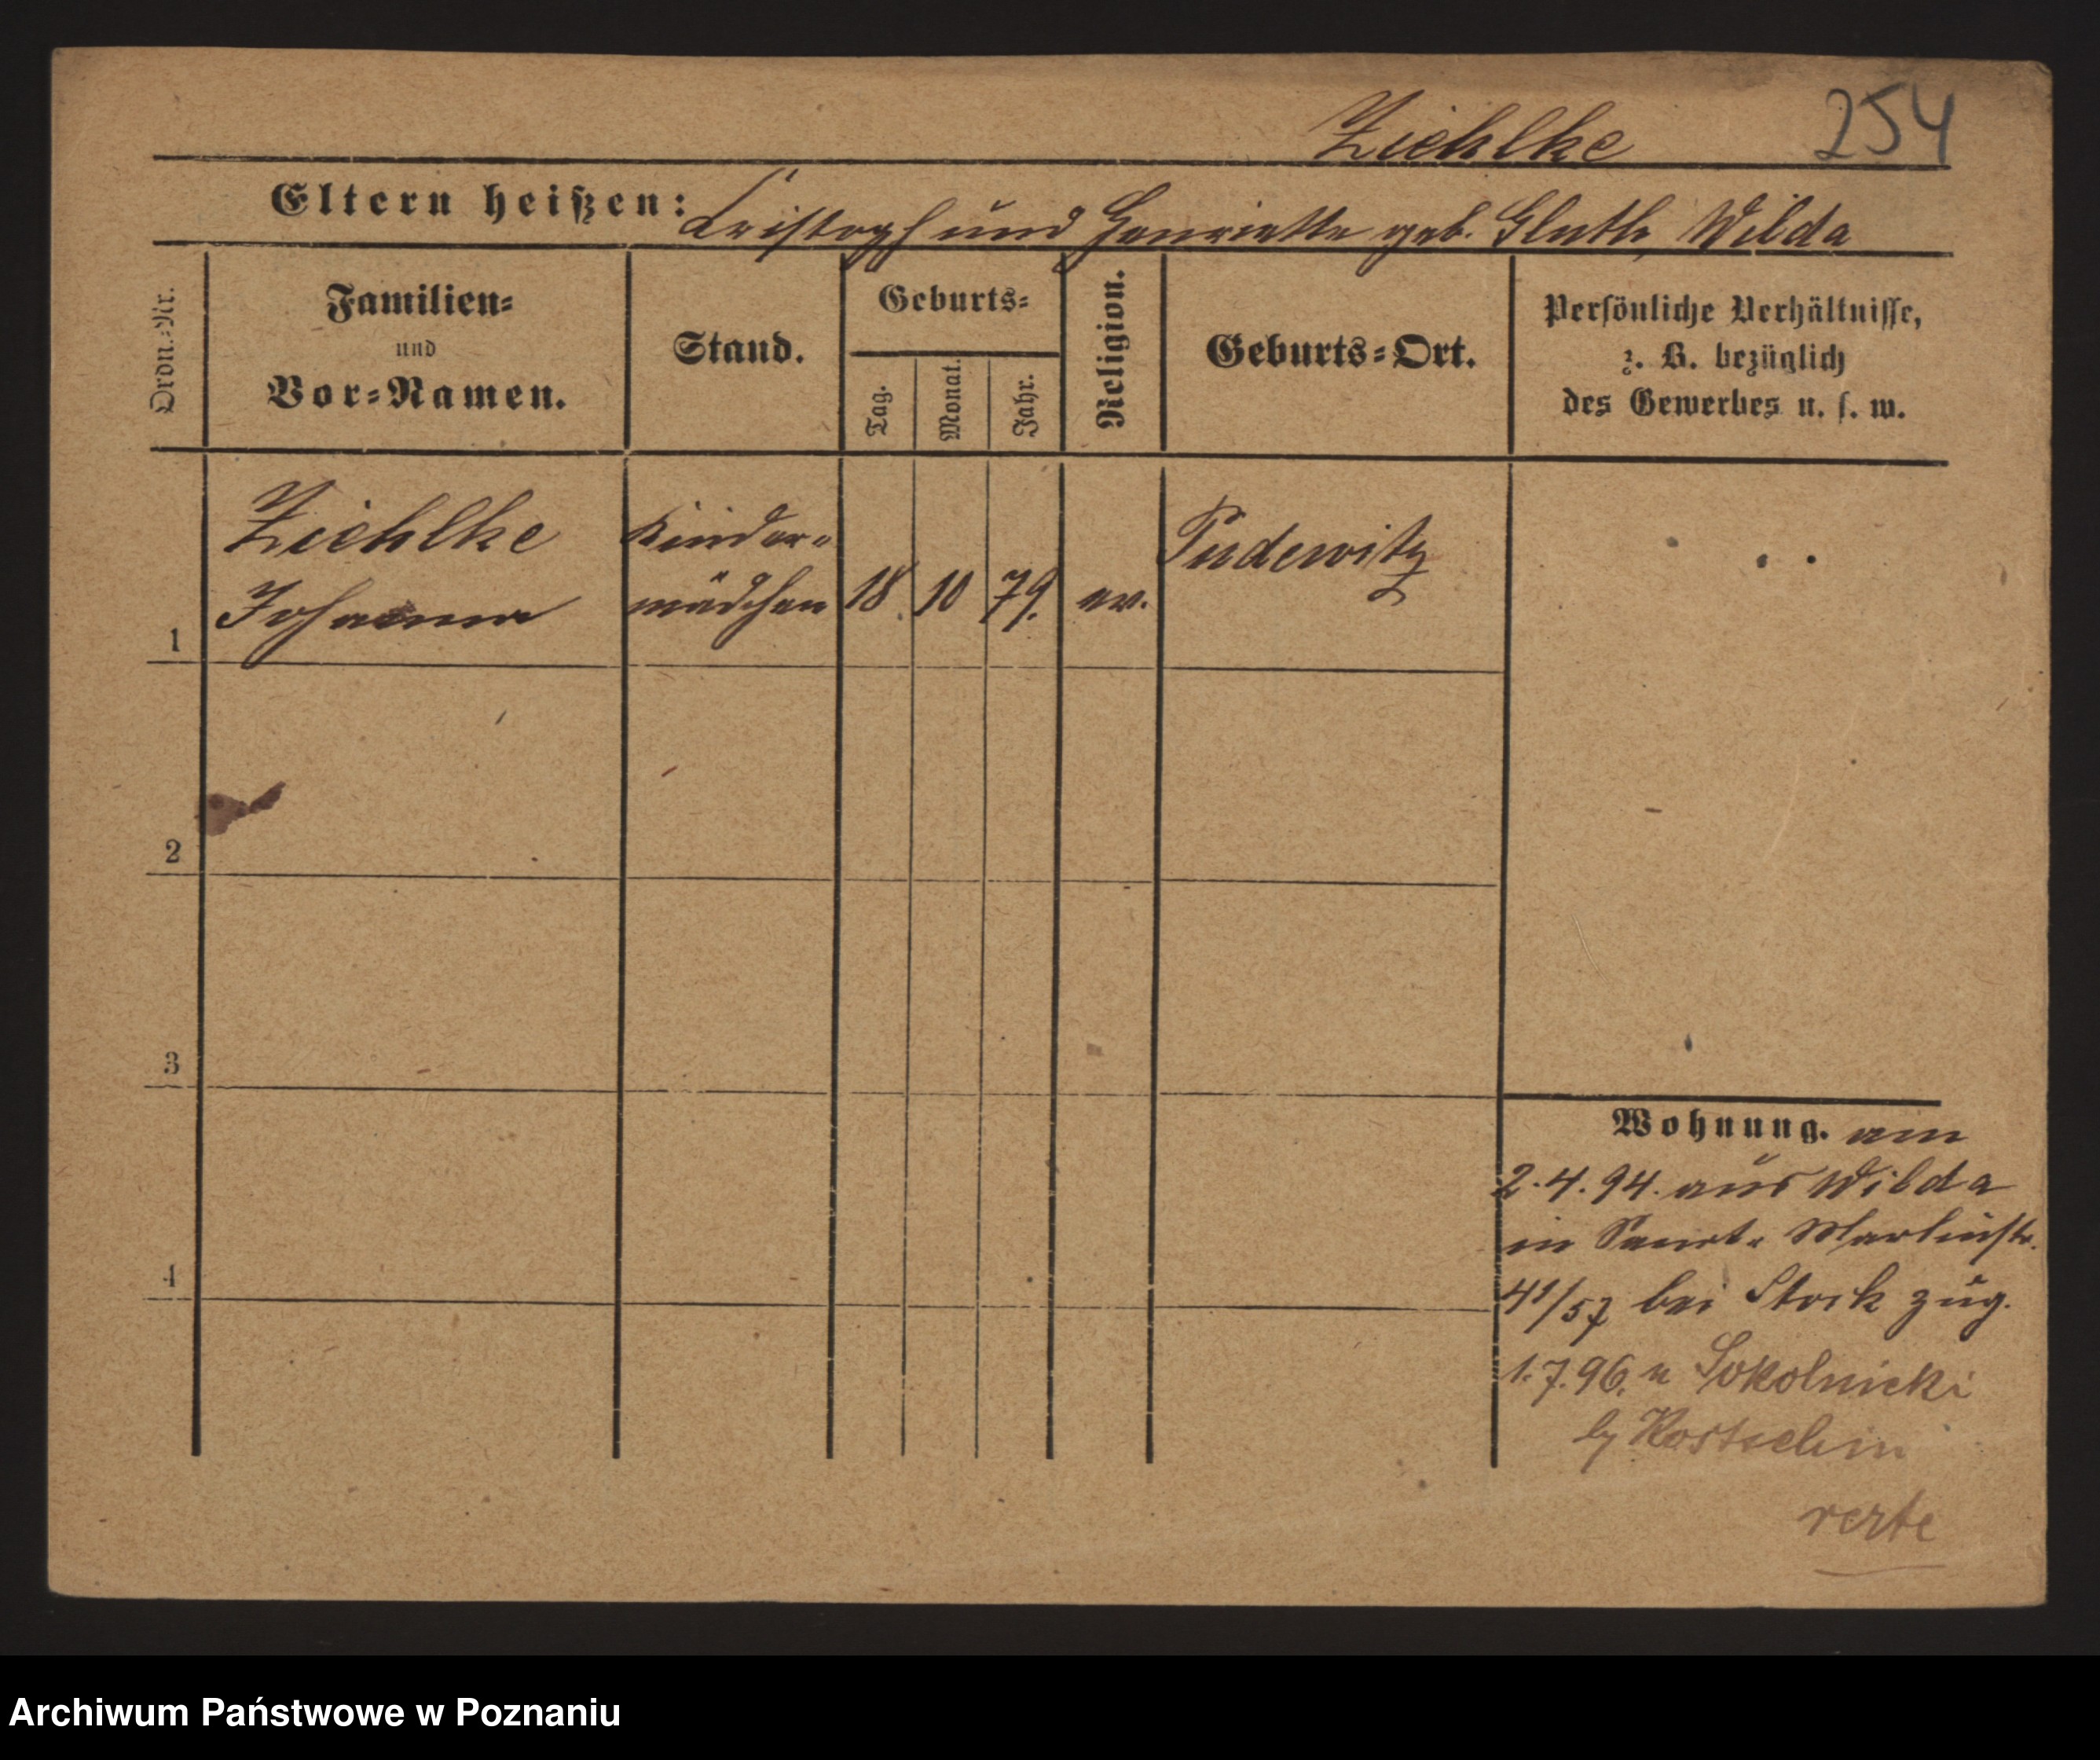 Ziehlke 254
Eltern heißen: Cristoph und Henriette geb. Gluth, Wilda
Ordn.-Nr.
Familien-
und
Vor-Namen.
Stand.
Geburts-
Tag.
Monat.
Jahr.
Religion.
Geburts-Ort.
Persönliche Verhältnisse,
z. B. bezüglich
des Gewerbes u. s. w.
Ziehlke
Johanna
Kinder-
mädchen
18. 10 79. ev.
Pudewitz
1
2
3
4
Wohnung. am
2.4.94. aus Wilda
in Sanct- Martinstr.
bei Stock zug.
1.7.96. n Sokolnicki
by Kostschin
verte
Archiwum Państwowe w Poznaniu